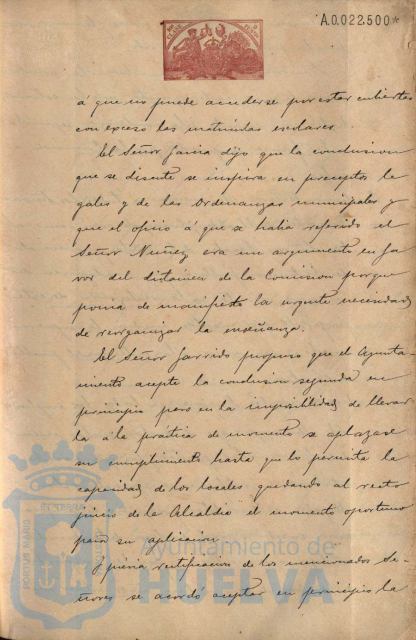 A.0.022.500*
á que no puede accederse por estar cubiertas
con exceso las matriculas escolares.
El Señor Garcia dijo que la conclusion
que se discute se inspira en preceptos le
gales y de las Ordenanzas municipales y
que el oficio á que se habia referido el
Señor Nuñez era un argumento en fa
vor del dictamen de la Comision porque
ponia de manifiesto la urgente necesidad
de reorganizar la enseñanza.
El Señor Garrido propuso que el Ayunta-
miento acepte la conclusion segunda en
principio pero en la imposibilidad de llevar
la á la práctica de momento se aplazase
su cumplimiento hasta que lo permita la
capacidad de los locales quedando al recto
juicio de la Alcaldia el momento oportuno
para su aplicacion.
Y previa rectificacion de los mencionados Se-
ñores se acordó aceptar en principio la
PORTUS MARIS
Ayuntamiento de
HUELVA